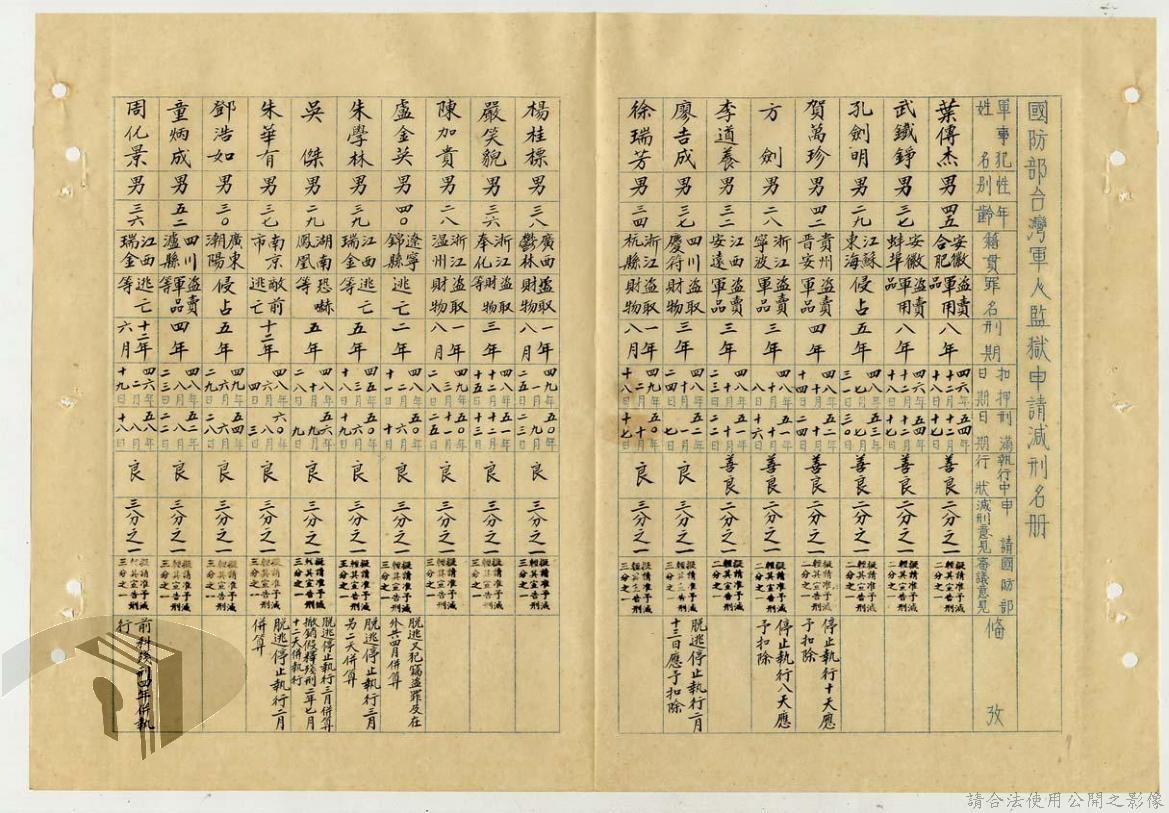 國防部台灣軍人監獄申請減刑名冊
軍事犯姓名 性別 年齡 籍貫 罪名 刑期 扣押日期 刑滿日期 執行中行狀 申請減刑意見 國防部審議意見 備攷
葉傳杰 男 四五 安徽合肥 盜賣軍用品 八年 四六年十二月十七日 五四年十二月十七日 善良 二分之一 擬請准予減輕其宣告刑二分之一
武鐵錚 男 三七 安徽蚌埠 盜賣軍用品 八年 四六年十二月十七日 五四年十二月十七日 善良 二分之一 擬請准予減輕其宣告刑二分之一
孔劍明 男 二九 江蘇東海 侵占 五年 四八年七月三一日 五三年七月三〇日 善良 二分之一 擬請准予減輕其宣告刑二分之一
賀萬珍 男 四二 貴州晉安 盜賣軍品 四年 四八年十月十四日 五二年十月二四日 善良 二分之一 擬請准予減輕其宣告刑二分之一 停止執行十天應予扣除
方劍 男 二八 浙江寧波 盜賣軍品 三年 四八年十月八日 五一年十月十六日 善良 二分之一 擬請准予減輕其宣告刑二分之一 停止執行八天應予扣除
李道養 男 三二 江西安遠 盜賣軍品 三年 四八年十二月二日 五一年十二月二日 善良 二分之一 擬請准予減輕其宣告刑二分之一
廖吉成 男 三七 四川慶符 盜取財物 三年 四八年十月二四日 五二年一月七日 良 三分之一 擬請准予減輕其宣告刑三分之一 脫逃停止執行二月十三日應予扣除
徐瑞芳 男 三四 浙江杭縣 盜取財物 一年八月 四九年二月十八日 五〇年十月十七日 良 三分之一 擬請准予減輕其宣告刑三分之一
楊桂標 男 三八 廣西鬱林 盜取財物 一年八月 四九年一月二五日 五〇年九月二三日 良 三分之一 擬請准予減輕其宣告刑三分之一
嚴笑貌 男 三六 浙江奉化 盜取財物 三年 四八年十二月十五日 五一年十二月十三日 良 三分之一 擬請准予減輕其宣告刑三分之一
陳加貴 男 二八 浙江溫州 盜取財物 一年八月 四九年二月二八日 五〇年十月二五日 良 三分之一 擬請准予減輕其宣告刑三分之一
盧金英 男 四〇 遼寧錦縣 逃亡 二年 四八年二月十一日 五一年六月十日 良 三分之一 擬請准予減輕其宣告刑三分之一 脫逃又犯竊盜罪及在外共四月併算
朱學林 男 三九 江西瑞金 逃亡等 五年 四五年三月十一日 五〇年六月十九日 良 三分之一 擬請准予減輕其宣告刑三分之一 脫逃停止執行三月另二天併算
吳傑 男 二九 湖南鳳凰 恐嚇等 五年 四八年十月二八日 五六年九月九日 良 三分之一 擬請准予減輕其宣告刑三分之一 脫逃停止執行三月併算撤銷假釋殘刑二年七月十二天併執行
朱華有 男 三七 南京市 敵前逃亡 十二年 四八年六月四日 六〇年八月三日 良 三分之一 擬請准予減輕其宣告刑三分之一 脫逃停止執行二月併算
鄧浩如 男 三〇 廣東潮陽 侵占 五年 四九年六月二九日 五四年六月二八日 良 三分之一 擬請准予減輕其宣告刑三分之一
童炳成 男 五二 四川瀘縣 盜賣軍品 四年 四八年八月二三日 五二年八月二二日 良 三分之一 擬請准予減輕其宣告刑三分之一
周化景 男 三六 江西瑞金 逃亡等 十二年六月 四六年二月十九日 五八年八月十八日 良 三分之一 擬請准予減輕其宣告刑三分之一 前科殘刑四年併執行
請合法使用公開之影像